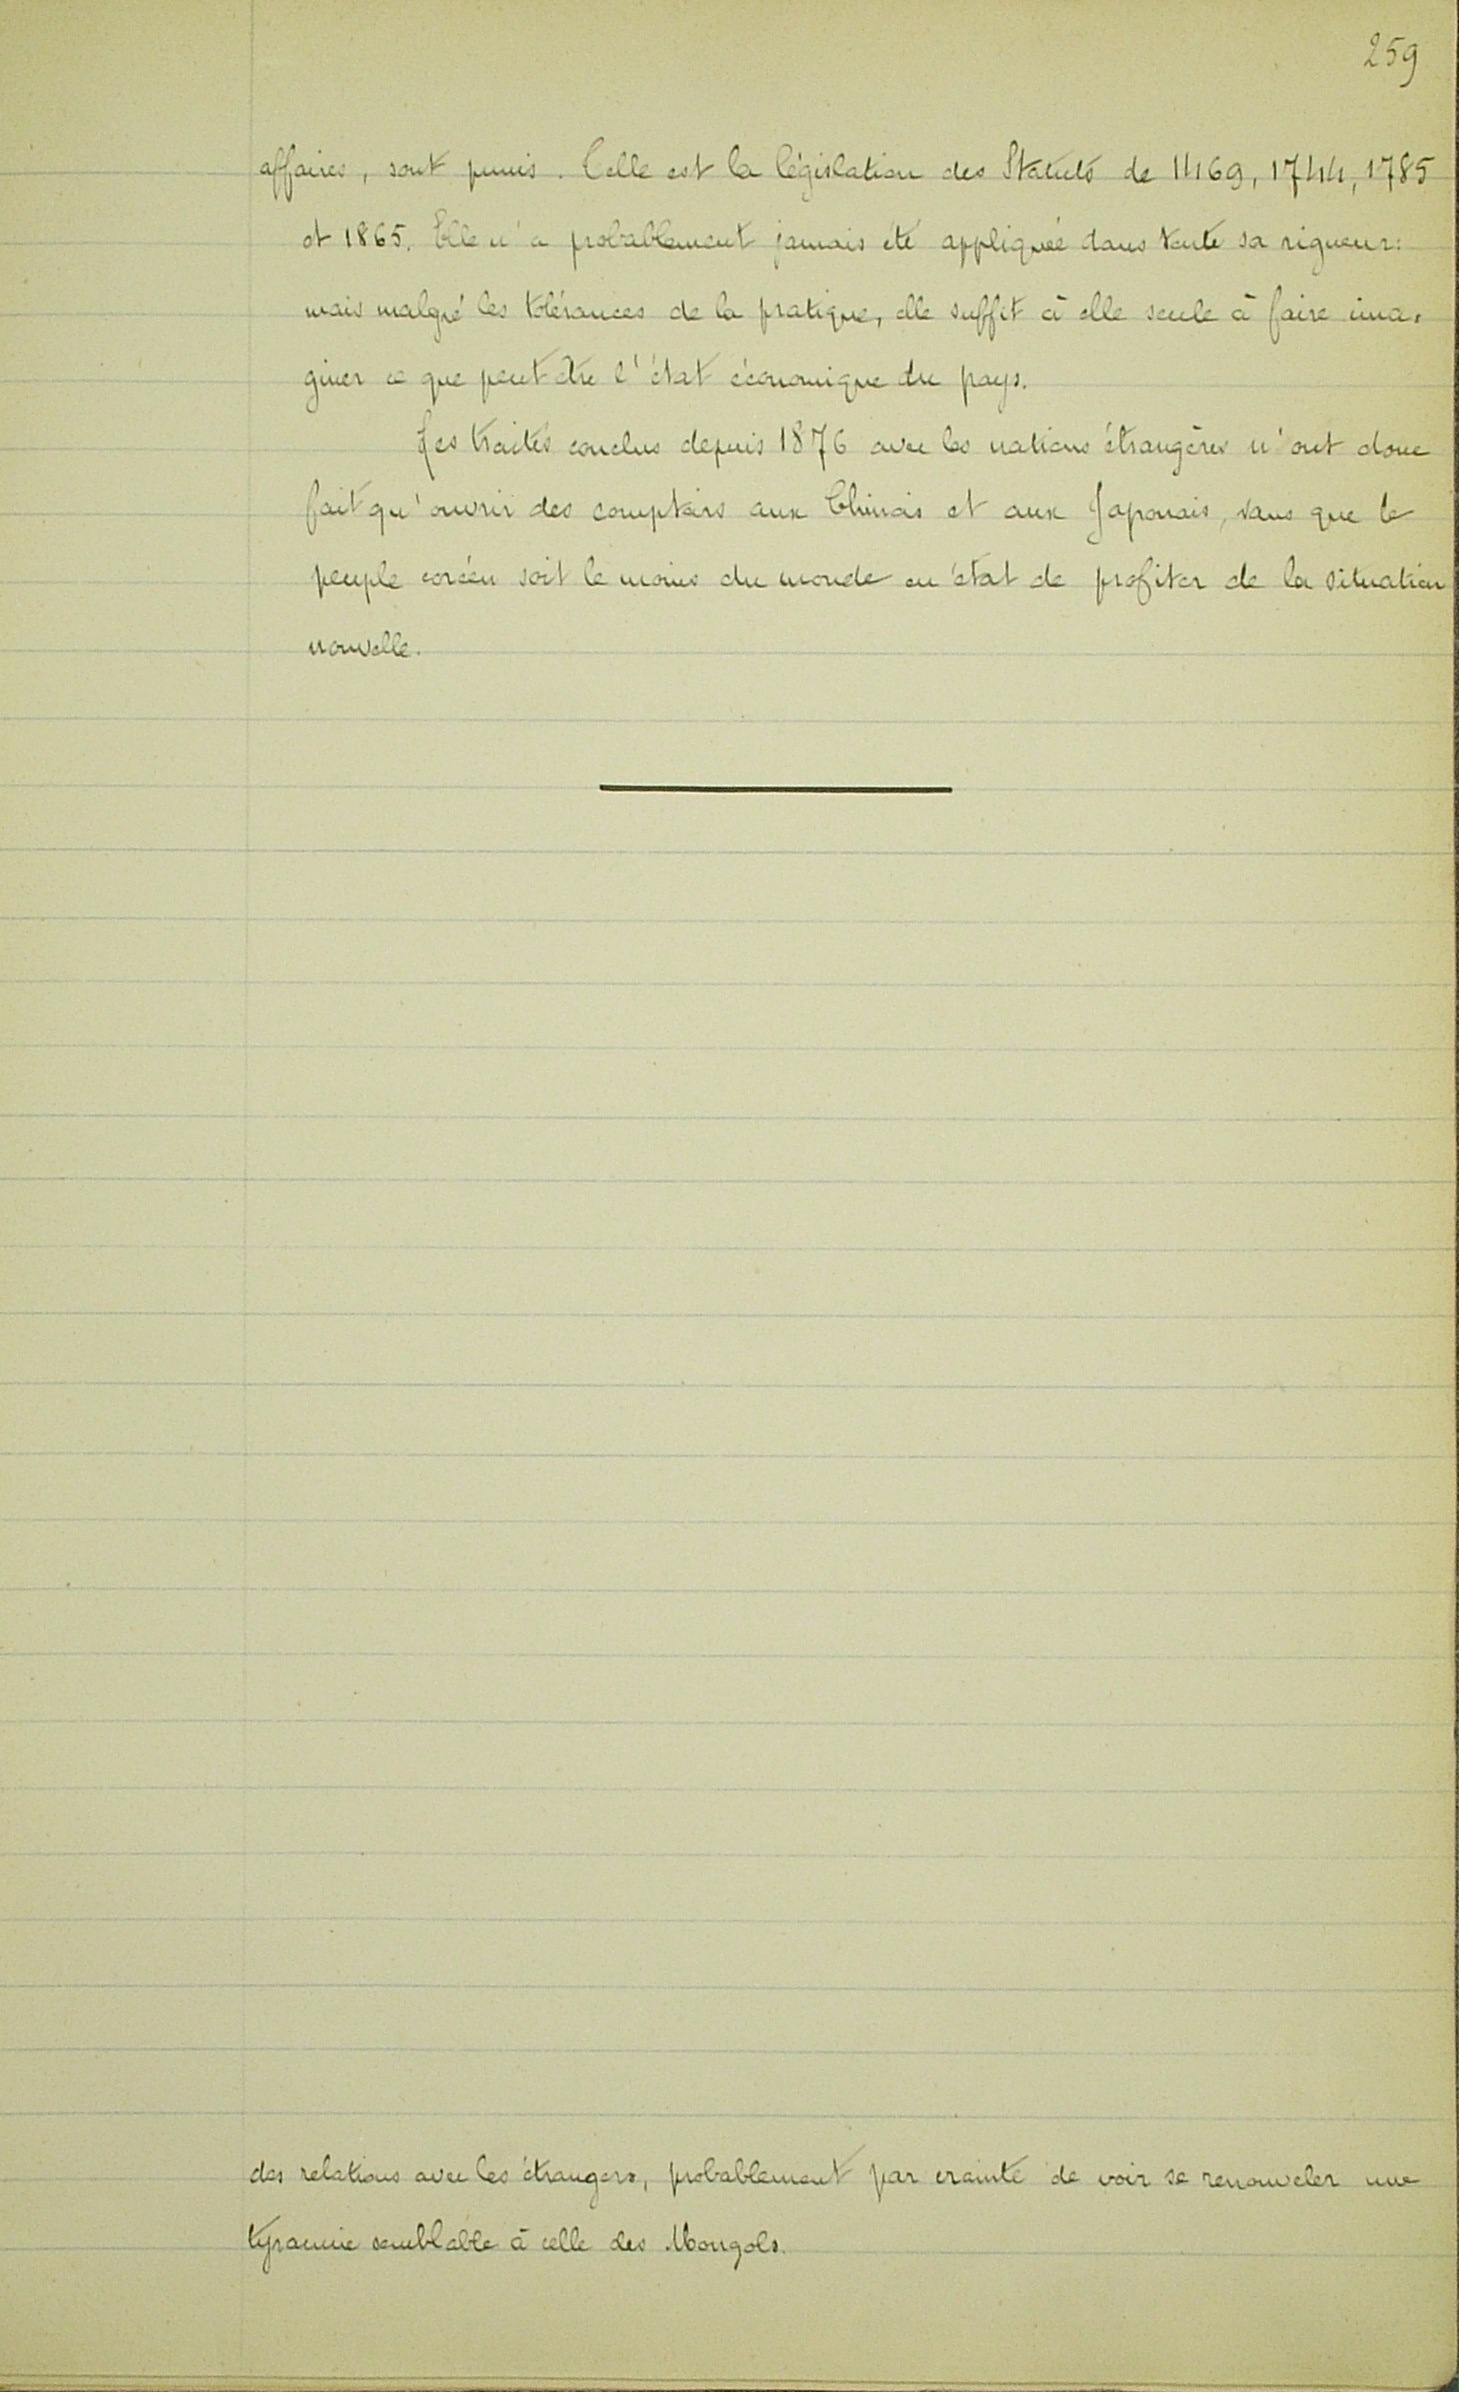 259
affaires, sont punis. Telle est la législation des Statuts de 1469, 1744, 1785
et 1865. Elle n'a probablement jamais été appliquée dans toute sa rigueur:
mais malgré les tolérances de la pratique, elle suffit à elle seule à faire ima-
giner ce que peut être l'état économique du pays.
Les traités conclus depuis 1876 avec les nations étrangères n'ont donc
fait qu'ouvrir des comptoirs aux Chinois et aux Japonais, sans que le
peuple coréen soit le moins du monde en état de profiter de la situation
nouvelle.
des relations avec les étrangers, probablement par crainte de voir se renouveler une
tyrannie semblable à celle des Mongols.